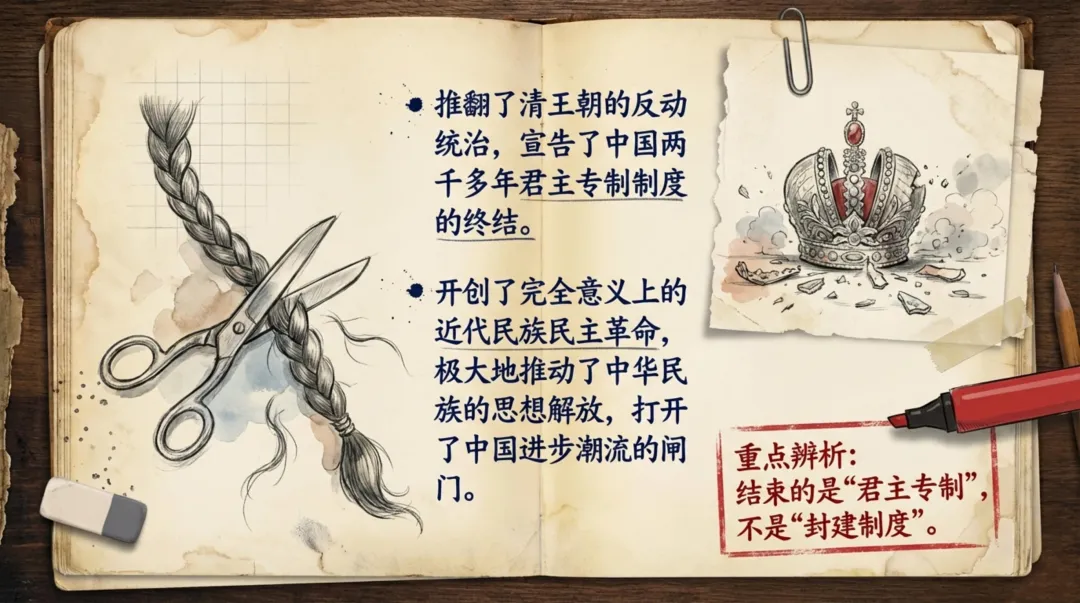 推翻了清王朝的反动
统治，宣告了中国两
千多年君主专制制度
的终结。
开创了完全意义上的
近代民族民主革命，
极大地推动了中华民
族的思想解放，打开
了中国进步潮流的闸
门。
重点辨析：
结束的是“君主专制”，
不是“封建制度”。